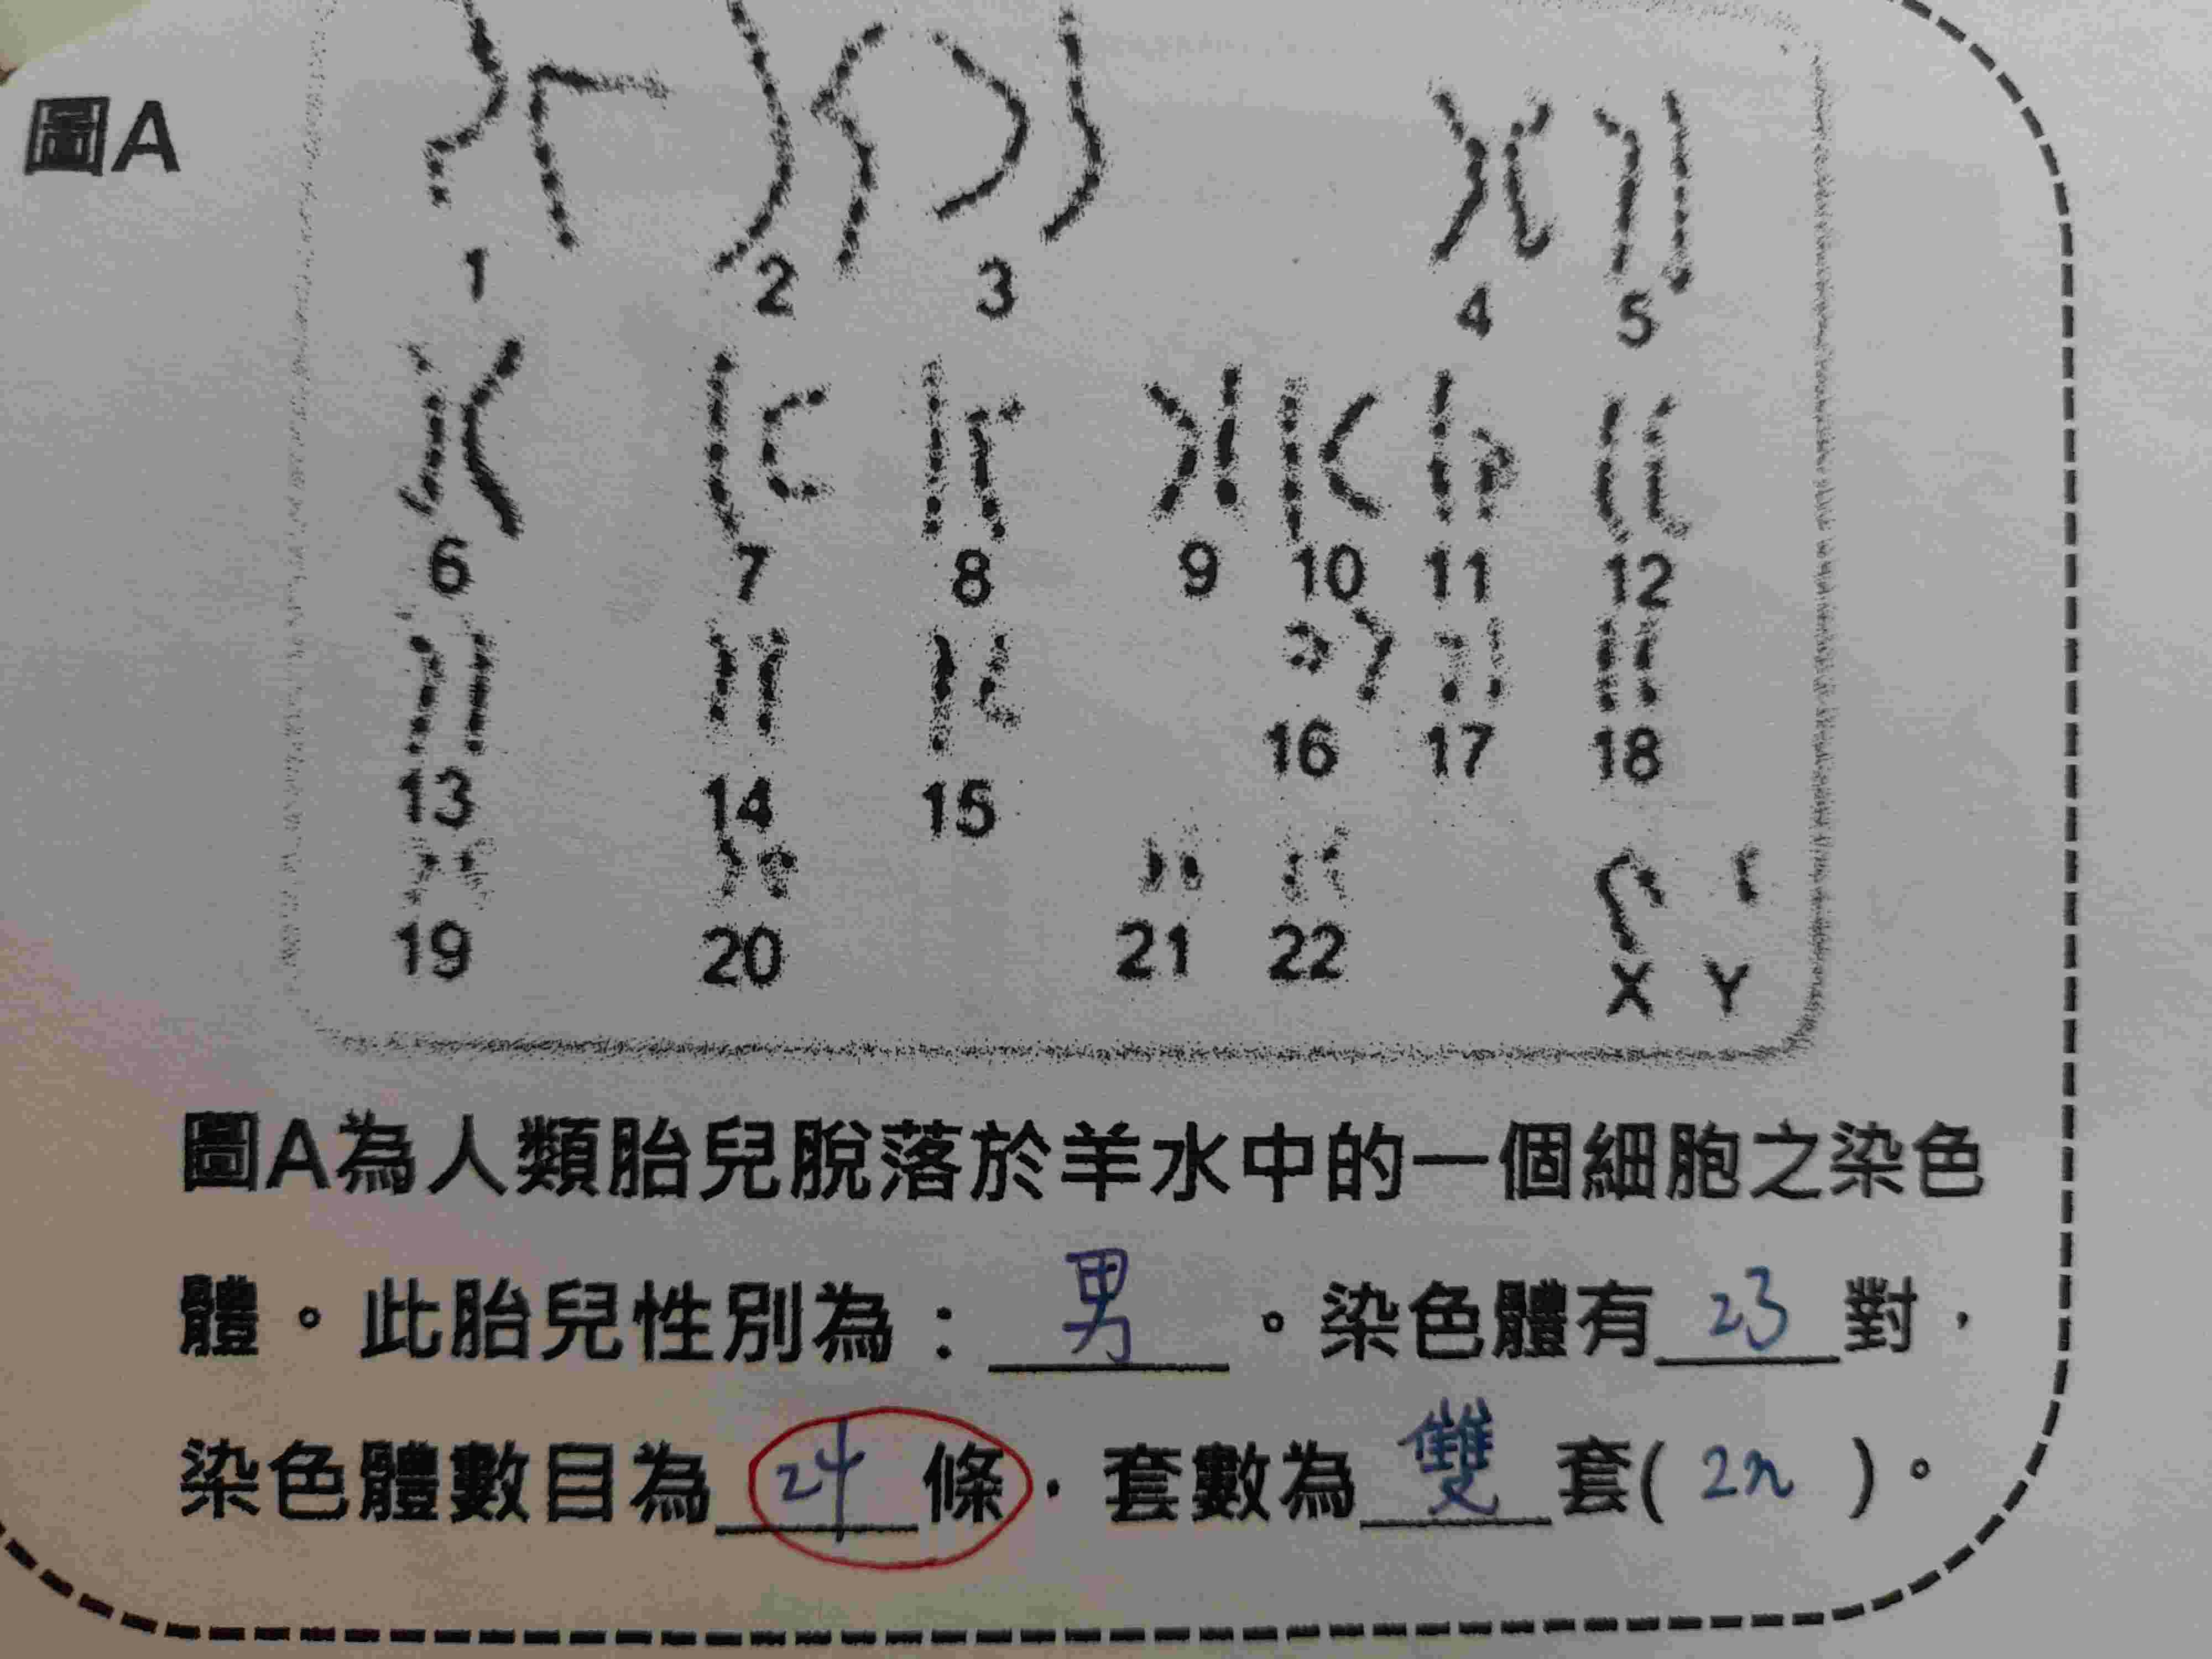 圖A
1 2 3 4 5
6 7 8 9 10 11 12
13 14 15 16 17 18
19 20 21 22 X Y
圖A為人類胎兒脫落於羊水中的一個細胞之染色
體。此胎兒性別為：男。染色體有23對，
染色體數目為24條，套數為雙套(2n)。